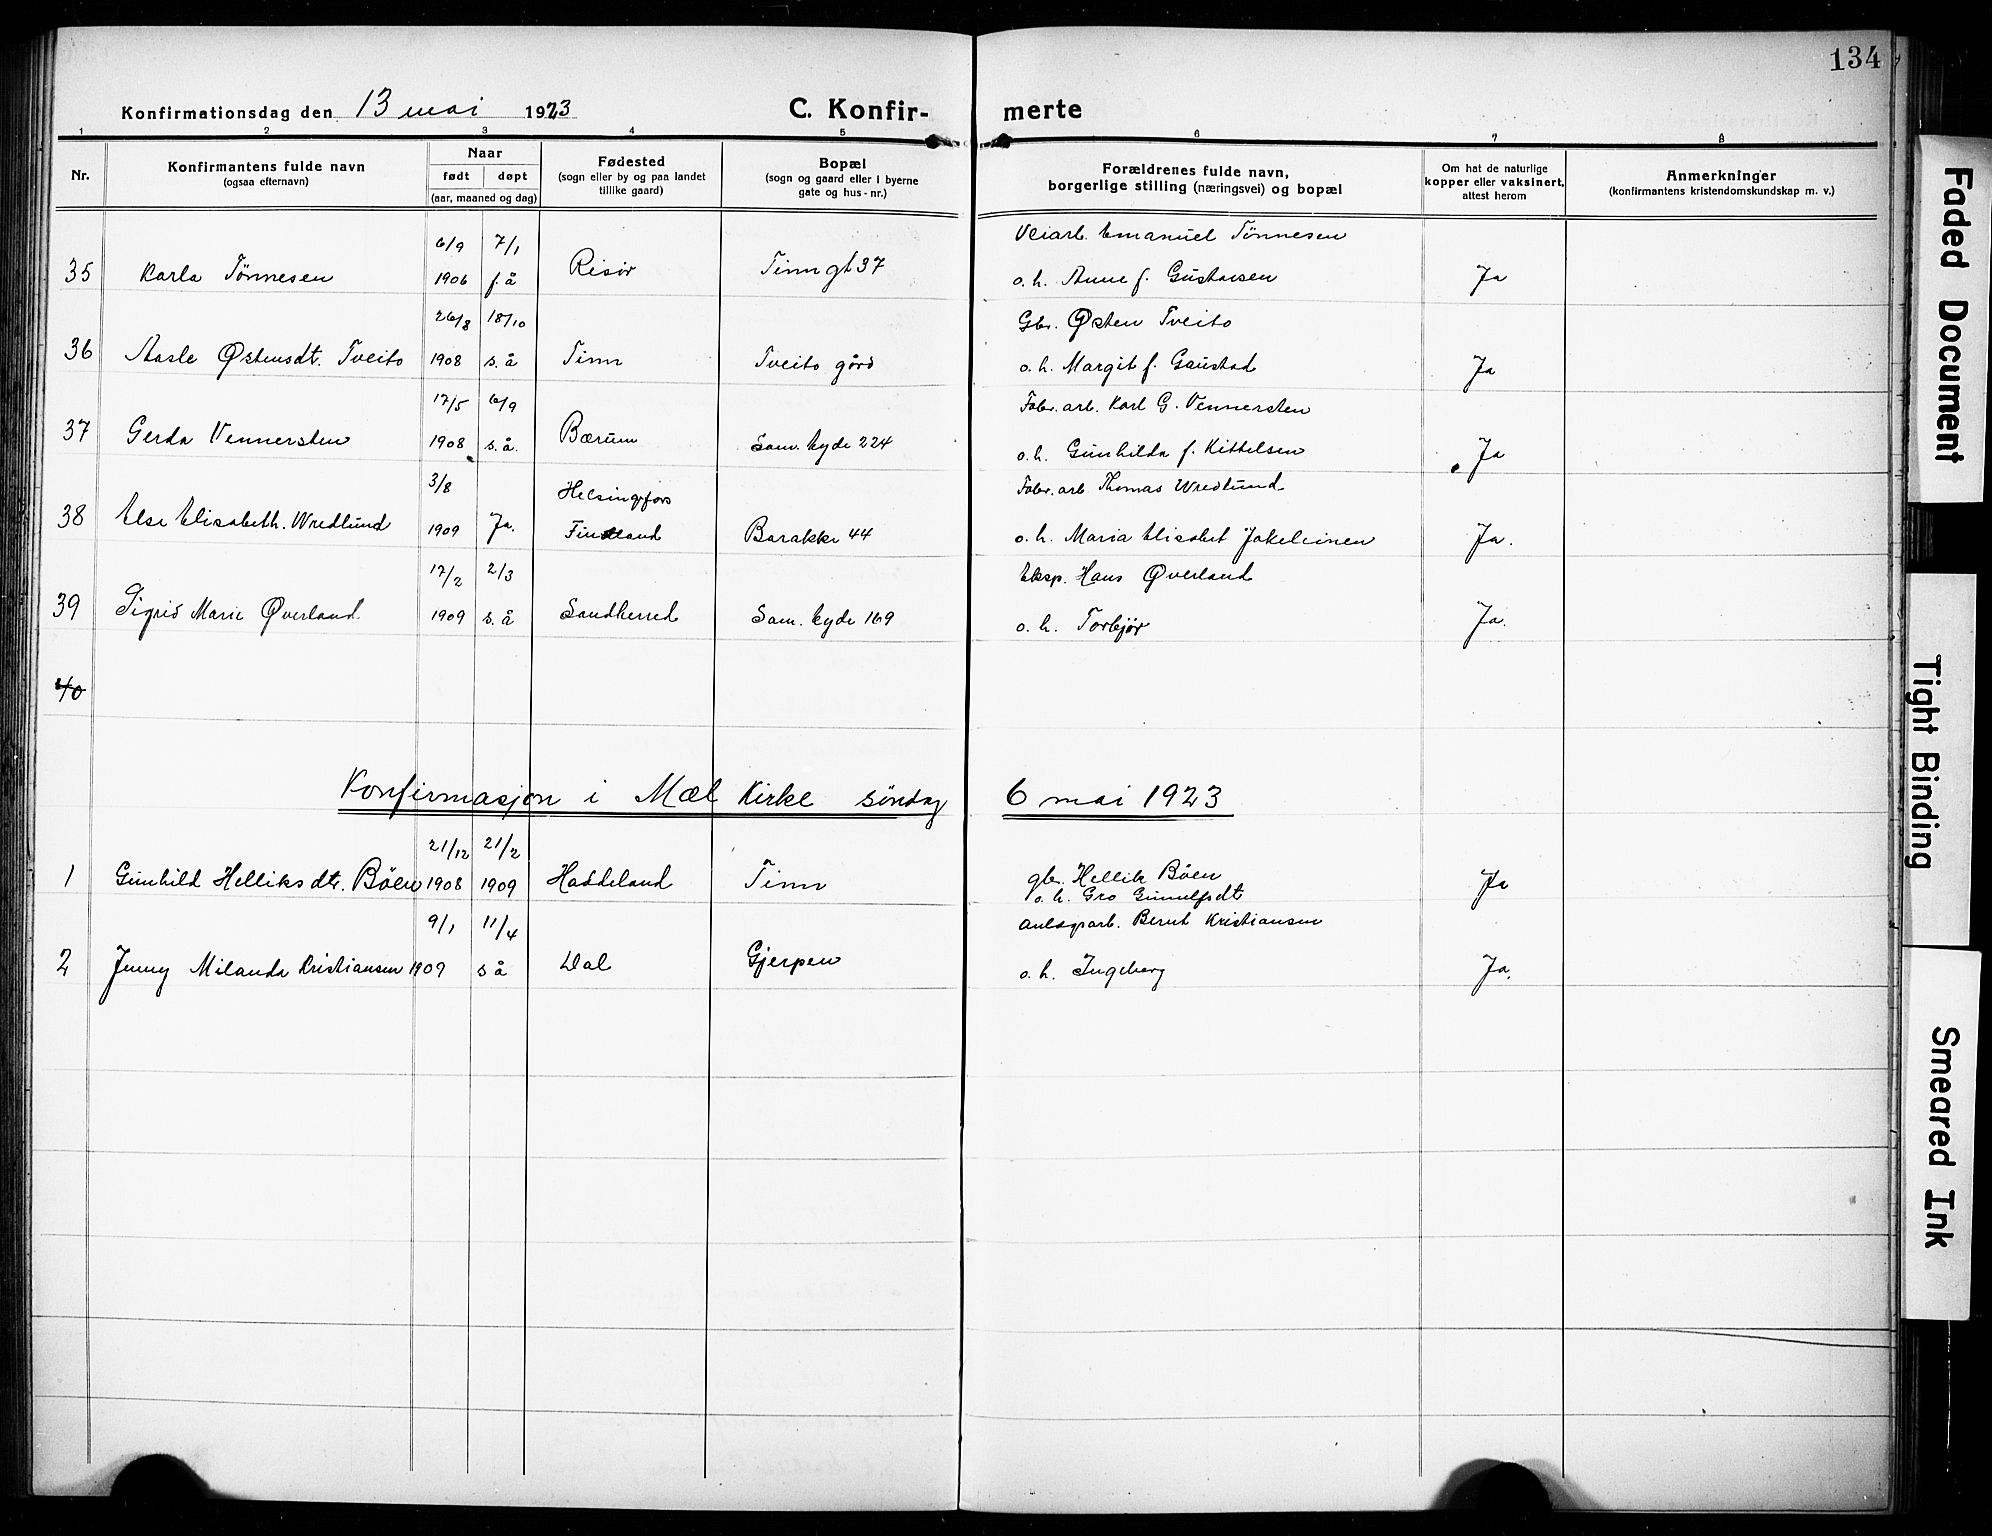 134
Konfirmationsdag den 13 mai 1923 C. Konfir- merte
1 2 3 4 5 6 7 8
Nr.
Konfirmantens fulde navn
(ogsaa efternavn)
Naar
født døpt
(aar, maaned og dag)
Fødested
(sogn eller by og paa landet
tillike gaard)
Bopæl
(sogn og gaard eller i byerne
gate og hus-nr.)
Forældrenes fulde navn,
borgerlige stilling (næringsvei) og bopæl
Om hat de naturlige
kopper eller vaksinert,
attest herom
Anmerkninger
(konfirmantens kristendomskundskap m. v.)
6/9 7/1 Veiarb. Emanuel Tönnesen
35 Karla Tönnesen 1906 f. å Risör Tinngt 37 o. h. Anne f. Gustavsen Ja
26/8 18/10 Gbr. Østen Tveito
36 Aasle Østensdt. Tveito 1908 s. å Tinn Tveito gård o. h. Margit f. Gaustad Ja
17/5 6/9 Fabr. arb. Karl G. Vennersten
37 Gerda Vennersten 1908 s. å. Bærum Sam. Eyde 224 o. h. Gunhilda f. Kittelsen Ja
3/8 Helsingfors Fabr. arb. Thomas Wredlund
38 Else Elisabeth. Wredlund 1909 Ja. Finland Barakke 44 o. h. Maria Elisabet Jokeleinen Ja.
17/2 2/3 Eksp. Hans Øverland
39 Sigrid Marie Øverland. 1909 s. å Sandherred Sam. Eyde 169 o. h. Torbjör Ja.
40
Konfirmasjon i Mæl Kirke söndag 6 mai 1923
21/12 21/2
1 Gunhild Helliksdtr. Böen 1908 1909 Haddeland Tinn gbr. Hellik Böen Ja
o. h. Gro Gunnulfsdt
9/1 11/4 Anlægsarb. Bernt Kristiansen
2 Jenny Milanda Kristiansen 1909 s å Dal Gjerpen o. h. Ingeborg Ja.
Faded Document
Tight Binding
Smeared Ink